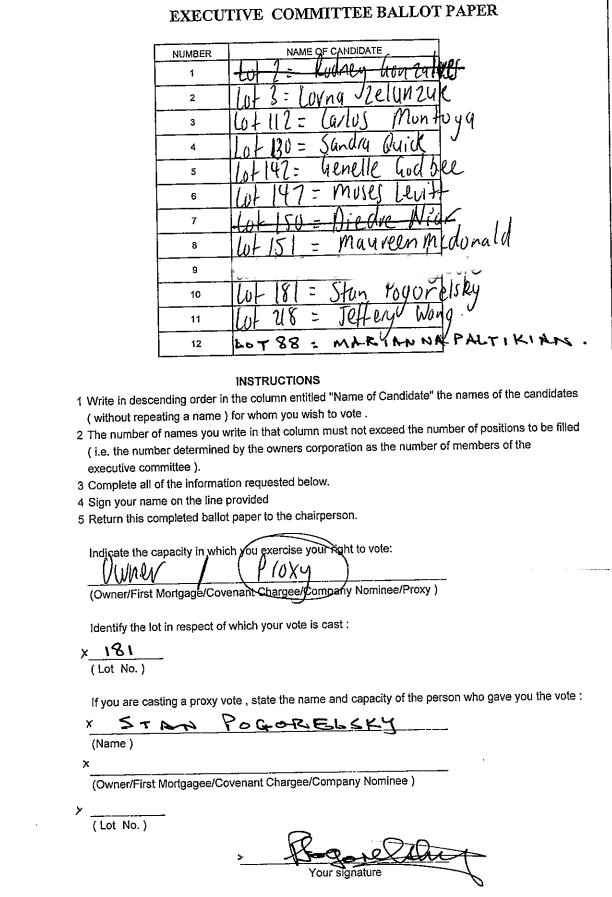 EXECUTIVE COMMITTEE BALLOT PAPER
NUMBER NAME OF CANDIDATE
1 Lot 2 = Rodney Gonzalves
2 Lot 3 = Lorna Zelunzuk
3 Lot 112 = Carlos Montoya
4 Lot 130 = Sandra Quick
5 Lot 142 = Genelle Godbee
6 Lot 147 = Moses Levitt
7 Lot 150 = Diedre
8 Lot 151 = Maureen Mcdonald
9
10 Lot 181 = Stan Pogorelsky
11 Lot 218 = Jeffery Wang
12 LOT 88 = MARYANNA PALTIKIAN.
INSTRUCTIONS
1 Write in descending order in the column entitled "Name of Candidate" the names of the candidates
( without repeating a name ) for whom you wish to vote .
2 The number of names you write in that column must not exceed the number of positions to be filled
( i.e. the number determined by the owners corporation as the number of members of the
executive committee ).
3 Complete all of the information requested below.
4 Sign your name on the line provided
5 Return this completed ballot paper to the chairperson.
Indicate the capacity in which you exercise your right to vote:
Owner / Proxy
(Owner/First Mortgage/Covenant Chargee/Company Nominee/Proxy )
Identify the lot in respect of which your vote is cast :
x 181
( Lot No. )
If you are casting a proxy vote , state the name and capacity of the person who gave you the vote :
x STAN POGORELSKY
(Name )
x
(Owner/First Mortgagee/Covenant Chargee/Company Nominee )
x
( Lot No. )
> Pogorelsky
Your signature